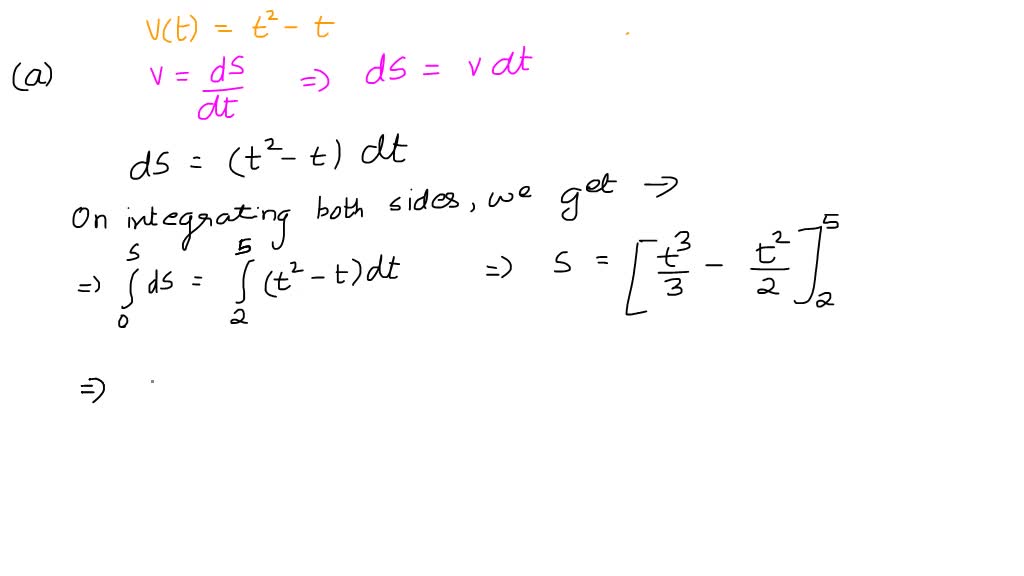 V(t) = t² - t
(a) v = dS/dt ⇒ dS = v dt
dS = (t² - t) dt
On integrating both sides, we get →
⇒ ∫₀ˢ dS = ∫₂⁵ (t² - t) dt ⇒ S = [t³/3 - t²/2]₂⁵
⇒